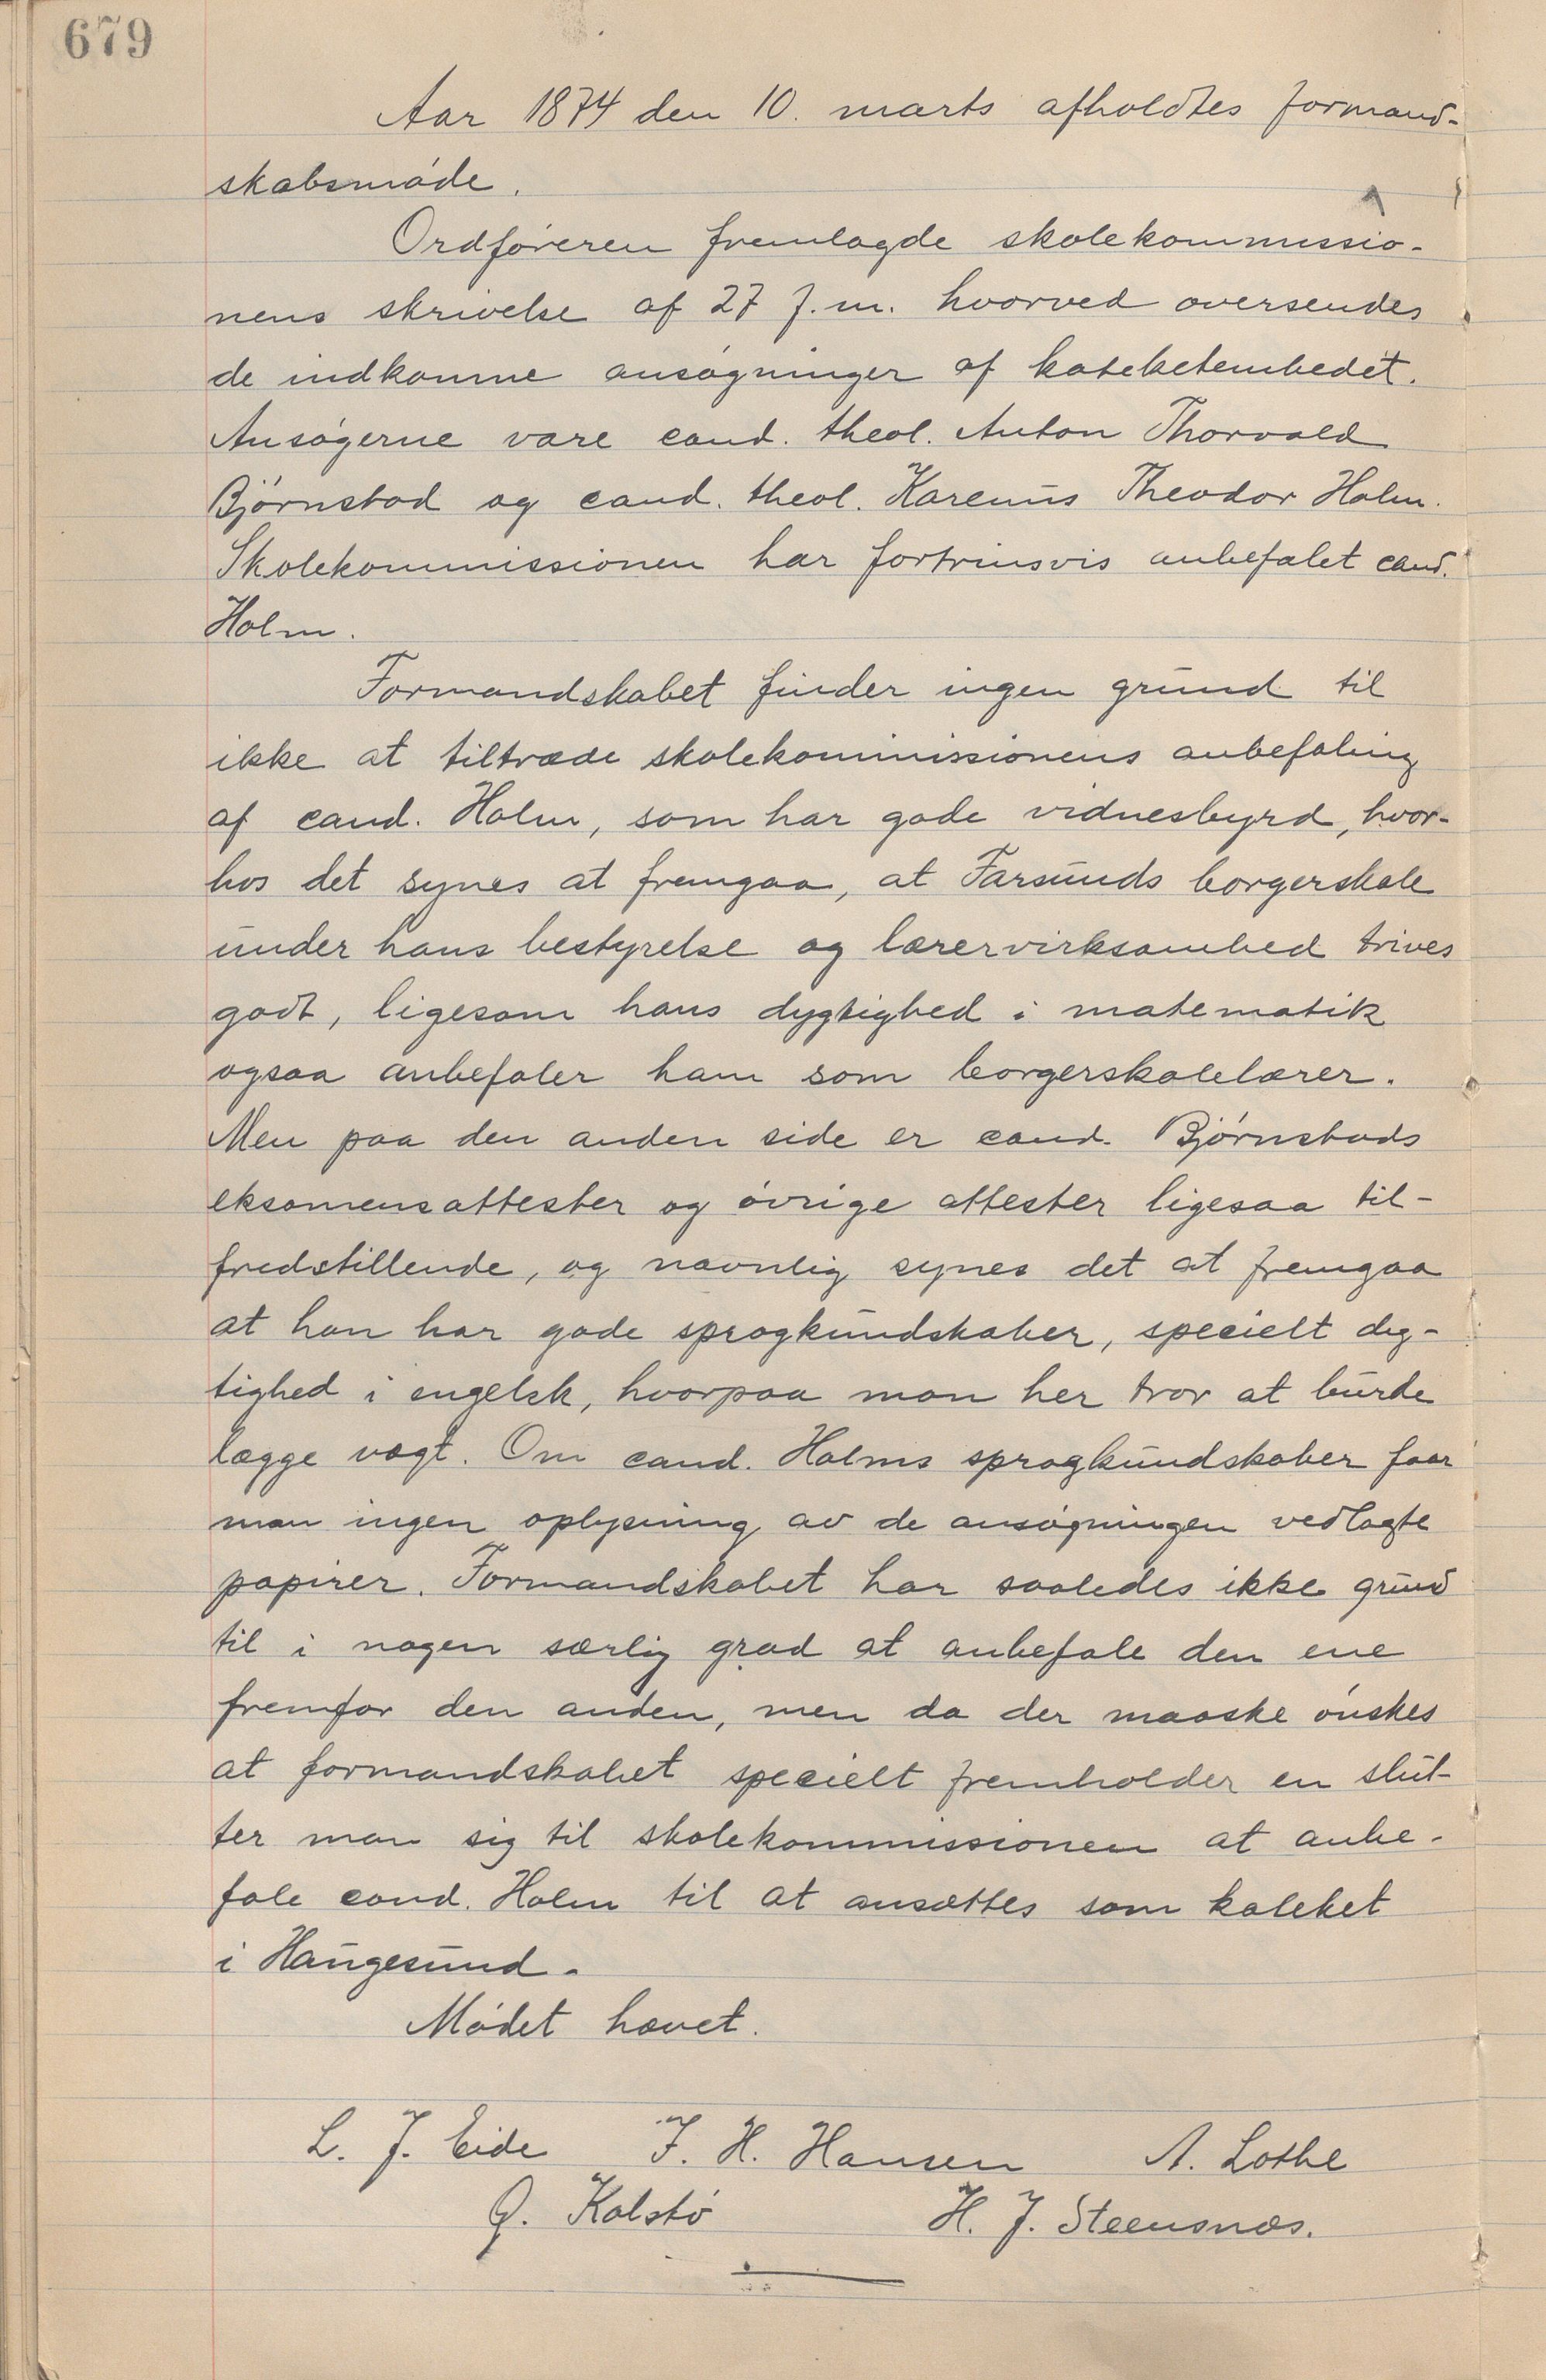 679
Aar 1874 den 10. marts afholdtes formand-
skabsmøde.
Ordføreren fremlagde skolekommissio-
nens skrivelse af 27 f.m. hvorved oversendes
de indkomne ansøgninger af kateketembedet.
Ansøgerne vare cand. theol. Anton Thorvald
Bjørnstad og cand. theol. Karenus Theodor Holm.
Skolekommissionen har fortrinsvis anbefalet cand.
Holm.
Formandskabet finder ingen grund til
ikke at tiltræde skolekommissionens anbefaling
af cand. Holm, som har gode vidnesbyrd, hvor-
hos det synes at fremgaa, at Farsunds borgerskole
under hans bestyrelse og lærervirksomhed trives
godt, ligesom hans dygtighed i matematik
ogsaa anbefaler ham som borgerskolelærer.
Men paa den anden side er cand. Bjørnstads
eksamensattester og øvrige attester ligesaa til-
fredstillende, og navnlig synes det at fremgaa
at han har gode sprogkundskaber, specielt dyg-
tighed i engelsk, hvorpaa man her tror at burde
lægge vægt. Om cand. Holms sprogkundskaber faar
man ingen oplysning av de ansøgningen vedlagte
papirer. Formandskabet har saaledes ikke grund
til i nogen særlig grad at anbefale den ene
fremfor den anden, men da der maaske ønskes
at formandskabet specielt fremholder en slut-
ter man sig til skolekommissionen at anbe-
fale cand. Holm til at ansættes som kateket
i Haugesund.
Mødet hævet.
L. J. Eide J. H. Hansen A. Lothe
G. Kalstø H. J. Steensnæs.